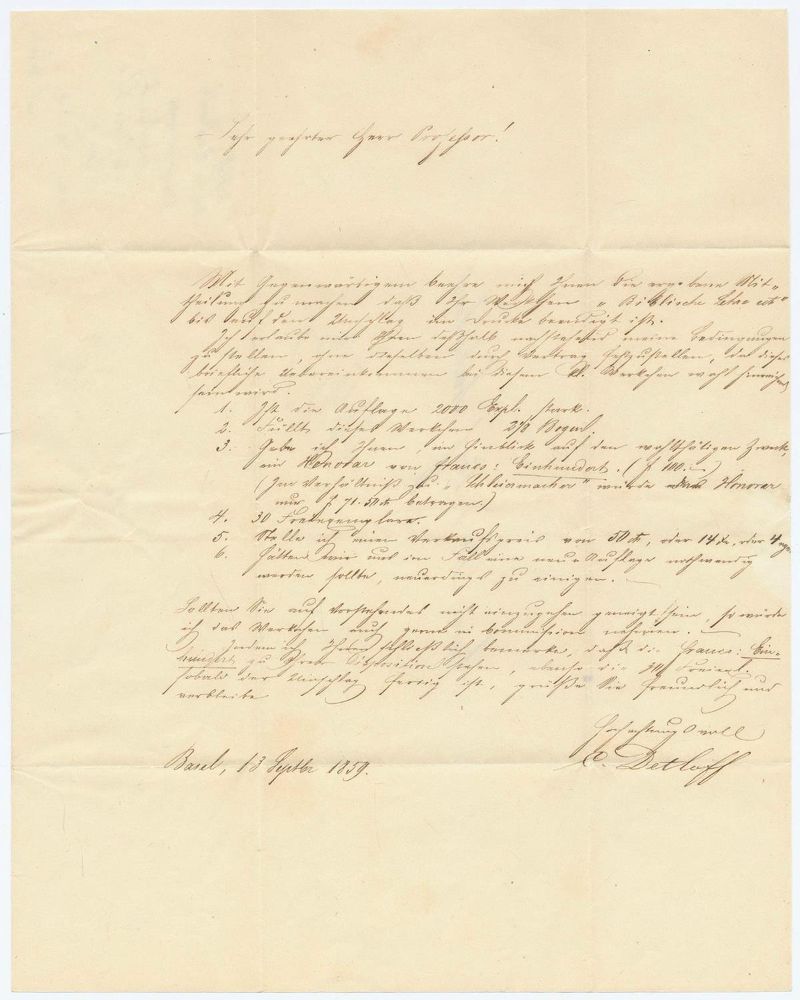 Sehr geehrter Herr Professor!
Mit Gegenwärtigem beehre mich Ihnen die ergebene Mit-
theilung zu machen daß Ihr Werkchen „Biblische
bis auf den Umschlag im Drucke beendigt ist.
Ich erlaube mir Ihnen deßhalb nachstehend meine Bedingungen
zu stellen, ohne dieselben durch Vertrag festzustellen, da diese
briefliche Uebereinkommen bei diesem kl. Werkchen wohl hinreichend
sein wird.
1. Ist die Auflage 2000 Expl. stark.
2. Füllt dieses Werkchen Bogen.
3. Gebe ich Ihnen, im Hinblick auf den wohlthätigen Zweck,
ein Honorar von francs: Einhundert. (f 100.–)
(Im Verhältniß zu „Uhrenmacher" würde das Honorar
nur f 71.50 ct betragen.)
4. 30 Freiexemplare.
5. Stelle ich einen Verkaufspreis von 50 ct, oder 14 kr, oder 4 ngr
6. Hätten wir uns im Fall eine neue Auflage nothwendig
werden sollte, neuerdings zu einigen.
Sollten Sie auf Vorstehendes nicht einzugehen geneigt sein, so würde
ich das Werkchen auch gerne in Commission nehmen.
Indem ich Ihnen schließlich bemerke, daß die francs: Ein-
hundert zu Ihrer Disposition stehen, ebenso die 30 Freiexpl.
sobald der Umschlag fertig ist, grüße Sie freundlich und
verbleibe
Hochachtungsvoll
C. Detloff
Basel, 13 Septbr 1859.